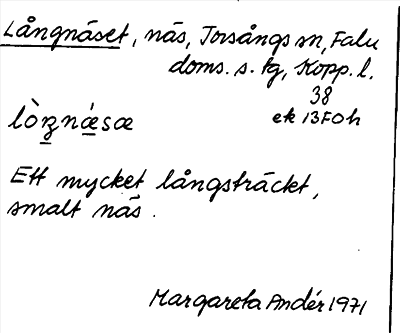 Långnäset, näs, Torsångs sn, Falu
doms. s. tg, Kopp. l.
38
ek 13F0h
lòŋnǽsæ
Ett mycket långsträckt,
smalt näs.
Margareta Andér 1971